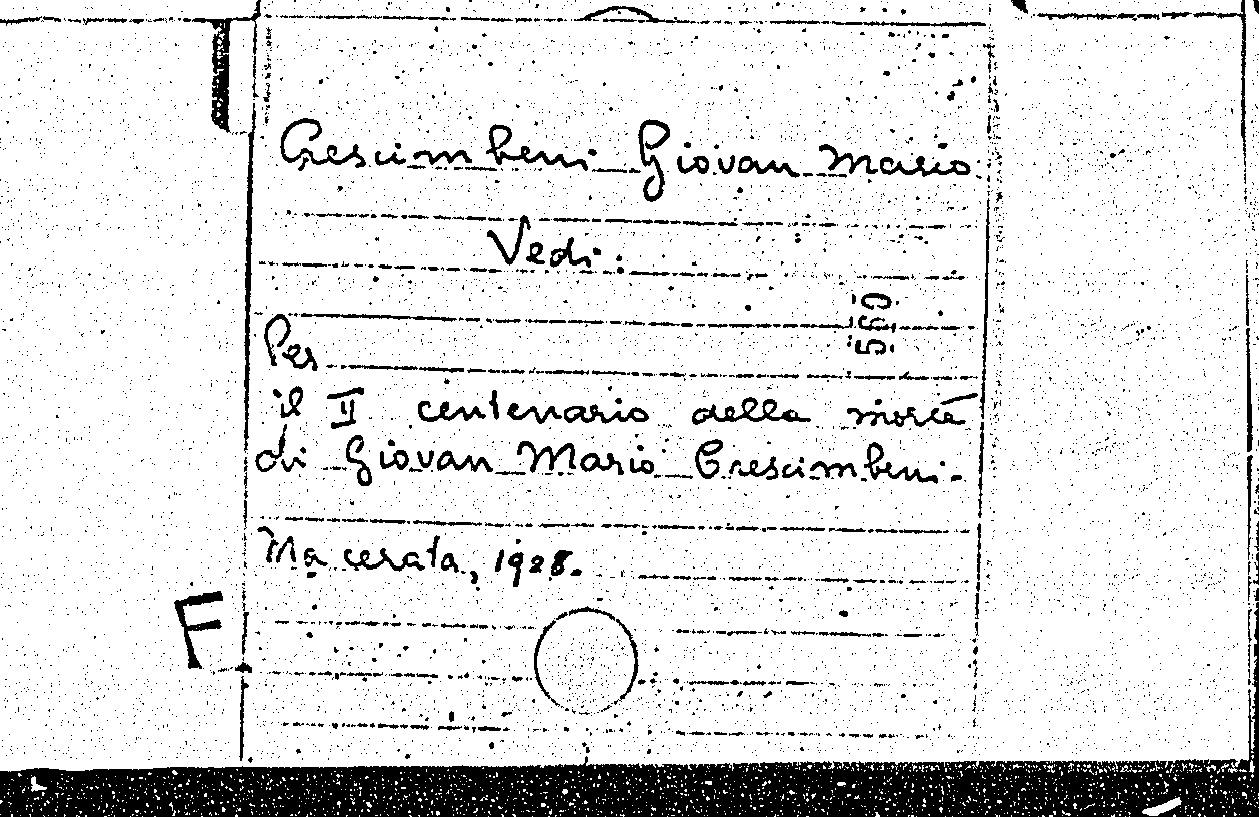 Crescimbeni Giovan Mario
Vedi:
560
Per
il II centenario della morte
di Giovan Mario Crescimbeni.
Macerata, 1928.
F